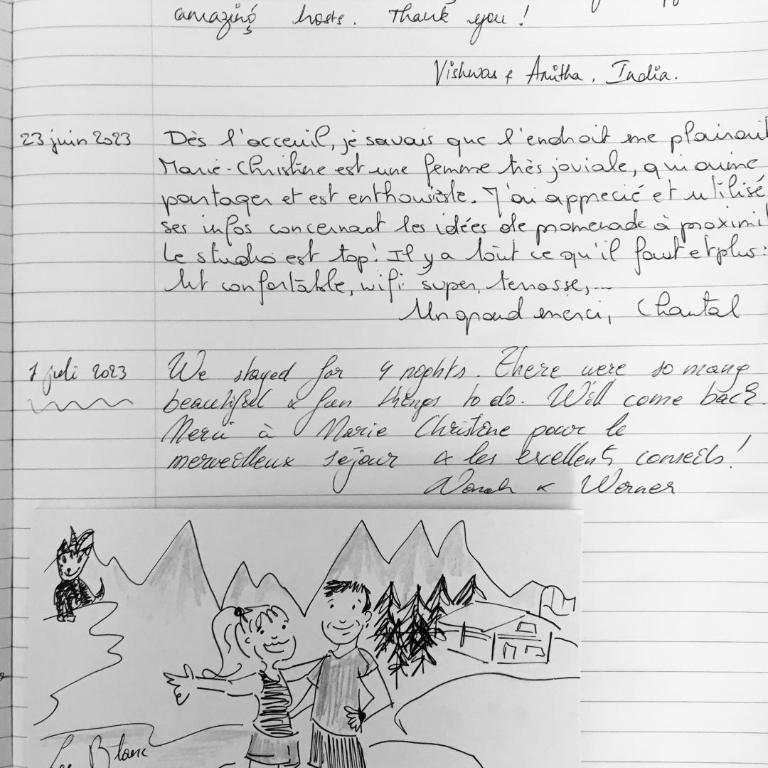 amazing hosts. Thank you!
Vishwas & Anitha, India.
23 juin 2023 Dès l'acceuil, je savais que l'endroit me plairait
Marie-Christine est une femme très joviale, qui aime
partager et est enthousiste. J'ai apprecié et utilisé
ses infos concernant les idées de promenade à proximi
Le studio est top! Il y a tout ce qu'il faut et plus:
lit confortable, wifi super, terrasse,...
Un grand merci, Chantal
1 juli 2023 We stayed for 4 nights. There were so many
beautiful & fun things to do. Will come back.
Merci à Marie Christine pour le
merveilleux séjour & les excellents conseils!
& Werner
Lac Blanc